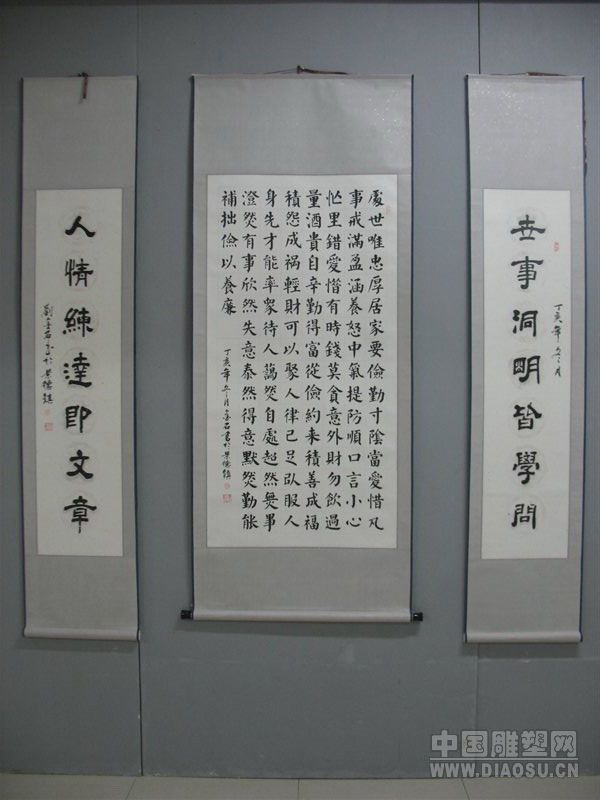 世事洞明皆學問
丁亥年五月
處世唯忠厚居家要儉勤寸陰當愛惜凡
事戒滿盈涵養怒中氣提防順口言小心
忙里錯愛惜有時錢莫貪意外財勿飲過
量酒貴自辛勤得富從儉約来積善成福
積怨成祸輕財可以聚人律己足以服人
身先才能率衆待人藹然自處超然無事
澄然有事欣然失意泰然得意默然勤能
補拙儉以養廉
丁亥年五月金石書於景德鎮
人情練達即文章
劉金石書於景德鎮
中国雕塑网
WWW.DIAOSU.CN